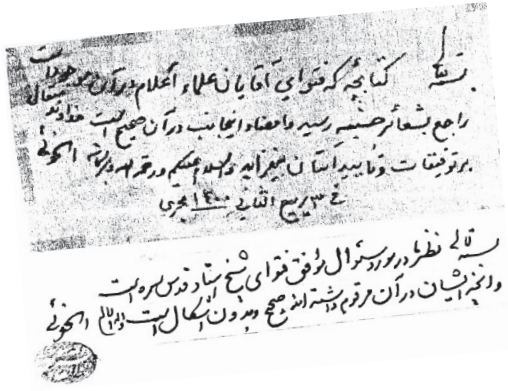 بسمه تعالی کتابچه که فتوای آقایان علماء أعلام در آن موجود است
راجع بشعائر حسینیه رسید و امضاء اینجانب در آن صحیح است خداوند متعال
بر توفیقات و تأیید آستان بیفزاید والسلام علیکم ورحمة الله وبرکاته الخوئی
فی ۳ ربیع الثانی ۱۴۰۰ هجری
بسمه تعالی نظر ما در مورد سئوال موافق فتوای شیخ استاد قدس سره است
و آنچه ایشان در آن مرقوم داشته اند صحیح و بدون اشکال است والله العالم الخوئی